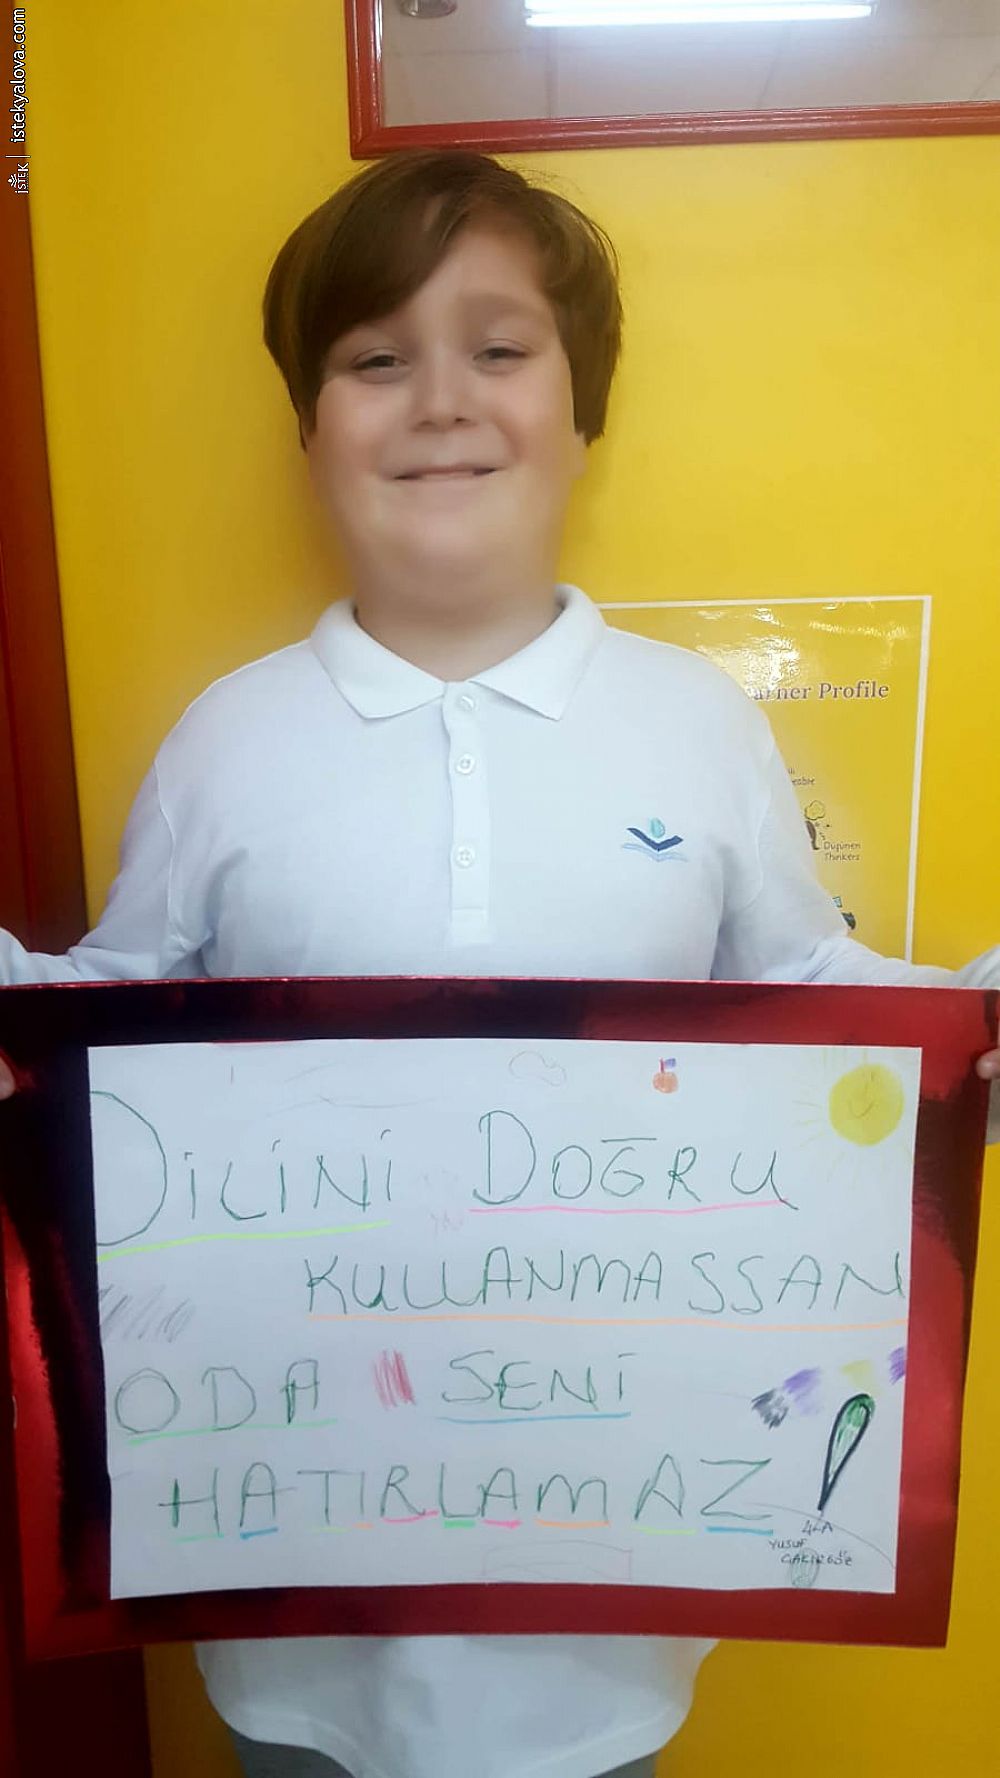 İSTEK | istekyalova.com
arner Profile
Düşünen
Thinkers
DİLİNİ DOĞRU
KULLANMASSAN
ODA SENİ
HATIRLAMAZ!
4-A
YUSUF
ÇAKIRGÖZ